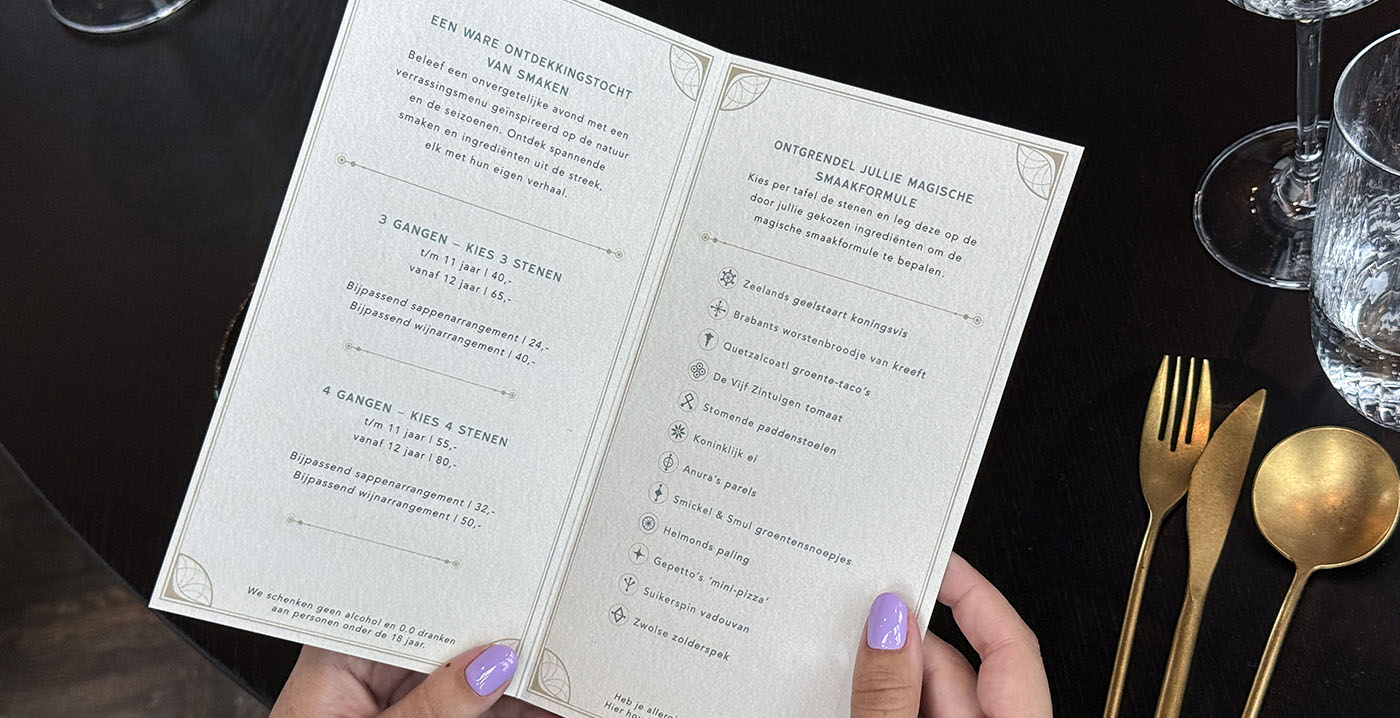 EEN WARE ONTDEKKINGSTOCHT
VAN SMAKEN
Beleef een onvergetelijke avond met een
verrassingsmenu geïnspireerd op de natuur
en de seizoenen. Ontdek spannende
smaken en ingrediënten uit de streek,
elk met hun eigen verhaal.
3 GANGEN – KIES 3 STENEN
t/m 11 jaar | 40,-
vanaf 12 jaar | 65,-
Bijpassend sappenarrangement | 24,-
Bijpassend wijnarrangement | 40,-
4 GANGEN – KIES 4 STENEN
t/m 11 jaar | 55,-
vanaf 12 jaar | 80,-
Bijpassend sappenarrangement | 32,-
Bijpassend wijnarrangement | 50,-
We schenken geen alcohol en 0.0 dranken
aan personen onder de 18 jaar.
ONTGRENDEL JULLIE MAGISCHE
SMAAKFORMULE
Kies per tafel de stenen en leg deze op de
door jullie gekozen ingrediënten om de
magische smaakformule te bepalen.
Zeelands geelstaart koningsvis
Brabants worstenbroodje van kreeft
Quetzalcoatl groente-taco's
De Vijf Zintuigen tomaat
Stomende paddenstoelen
Koninklijk ei
Anura's parels
Smickel & Smul groentensnoepjes
Helmonds paling
Gepetto's 'mini-pizza'
Suikerspin vadouvan
Zwolse zolderspek
Heb je
Hier